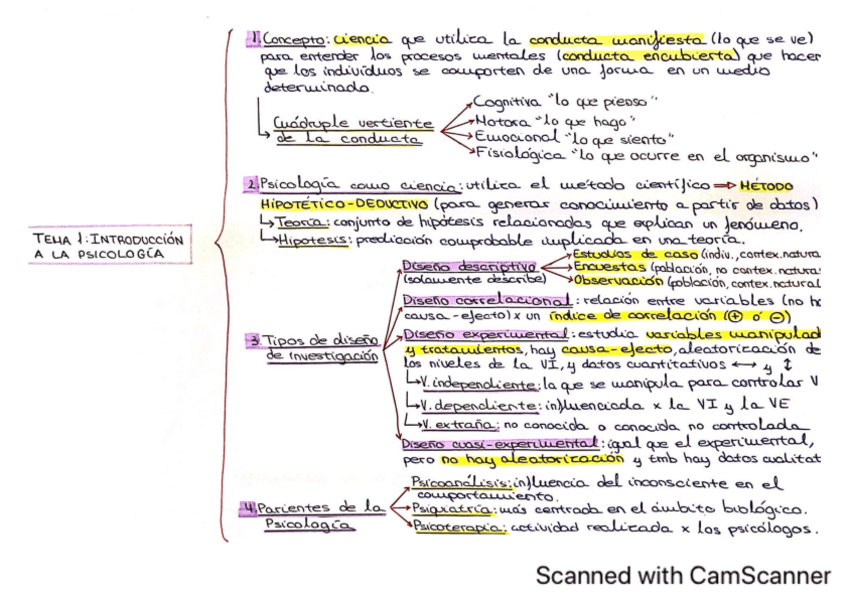 TEMA 1: INTRODUCCIÓN
A LA PSICOLOGÍA
1. Concepto: ciencia que utiliza la conducta manifiesta (lo que se ve)
para entender los procesos mentales (conducta encubierta) que hacen
que los individuos se comporten de una forma en un medio
determinado.
Cuádruple vertiente
de la conducta
Cognitiva "lo que pienso"
Motora "lo que hago"
Emocional "lo que siento"
Fisiológica "lo que ocurre en el organismo"
2. Psicología como ciencia: utiliza el método científico ⇒ MÉTODO
HIPOTÉTICO-DEDUCTIVO (para generar conocimiento a partir de datos)
Teoría: conjunto de hipótesis relacionadas que explican un fenómeno.
Hipotesis: predicación comprobable implicada en una teoría.
3. Tipos de diseño
de investigación
Diseño descriptivo
(solamente describe)
Estudios de caso (indiv., contex. natura
Encuestas (población, no contex. natura
Observación (población, contex. natural
Diseño correlacional: relación entre variables (no h
causa-efecto) x un índice de correlación (⊕ ó ⊖)
Diseño experimental: estudia variables manipulad
y tratamientos, hay causa-efecto, aleatorización de
los niveles de la VI, y datos cuantitativos ↔ y ↕
V. independiente: la que se manipula para controlar V
V. dependiente: influenciada x la VI y la VE
V. extraña: no conocida o conocida no controlada
Diseño cuasi-experimental: igual que el experimental,
pero no hay aleatorización y tmb hay datos cualitat
4. Parientes de la
Psicología
Psicoanálisis: influencia del inconsciente en el
comportamiento.
Psiquiatría: más centrada en el ámbito biológico.
Psicoterapia: actividad realizada x los psicólogos.
Scanned with CamScanner